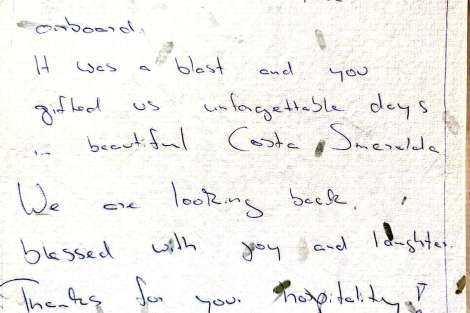 onboard.
It was a blast and you
gifted us unforgettable days
in beautiful Costa Smeralda
We are looking back,
blessed with joy and laughter.
Thanks for your hospitality!